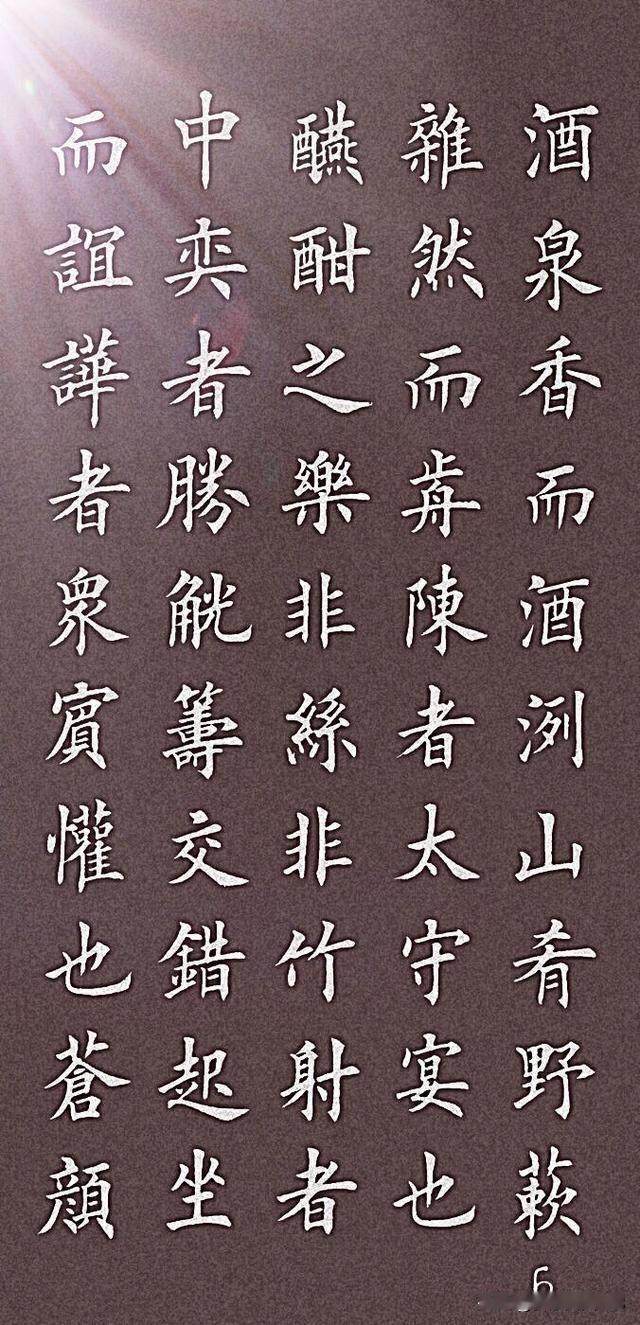 酒泉香而酒洌山肴野蔌
雜然而歬陳者太守宴也
醼酣之樂非絲非竹射者
中奕者勝觥籌交錯起坐
而諠譁者眾賓懽也蒼顏
6